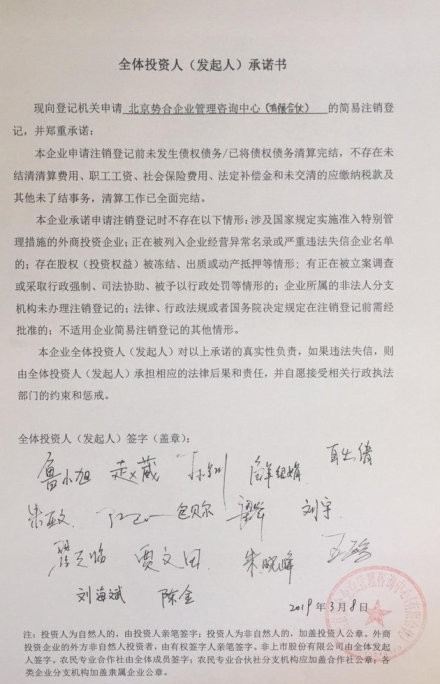 全体投资人（发起人）承诺书
现向登记机关申请 北京势合企业管理咨询中心（有限合伙） 的简易注销登
记，并郑重承诺：
本企业申请注销登记前未发生债权债务/已将债权债务清算完结，不存在未
结清清算费用、职工工资、社会保险费用、法定补偿金和未交清的应缴纳税款及
其他未了结事务，清算工作已全面完结。
本企业承诺申请注销登记时不存在以下情形：涉及国家规定实施准入特别管
理措施的外商投资企业；正在被列入企业经营异常名录或严重违法失信企业名单
的；存在股权（投资权益）被冻结、出质或动产抵押等情形；有正在被立案调查
或采取行政强制、司法协助、被予以行政处罚等情形的；企业所属的非法人分支
机构未办理注销登记的；法律、行政法规或者国务院决定规定在注销登记前需经
批准的；不适用企业简易注销登记的其他情形。
本企业全体投资人（发起人）对以上承诺的真实性负责，如果违法失信，则
由全体投资人（发起人）承担相应的法律后果和责任，并自愿接受相关行政执法
部门的约束和惩戒。
全体投资人（发起人）签字（盖章）：
鲁小旭 赵薇
朱敏 包贝尔 刘宇
翟天临 贾文田 朱晓峰 王玲
刘海斌 陈金
2019年3月8日
注：投资人为自然人的，由投资人亲笔签字；投资人为非自然人的，加盖投资人公章。外商
投资企业的外方非自然人投资者，由有权签字人亲笔签字。非上市股份有限公司由全体发起
人签字。农民专业合作社由全体成员签字；农民专业合作社分支机构应加盖合作社公章；各
类企业分支机构加盖隶属企业公章。